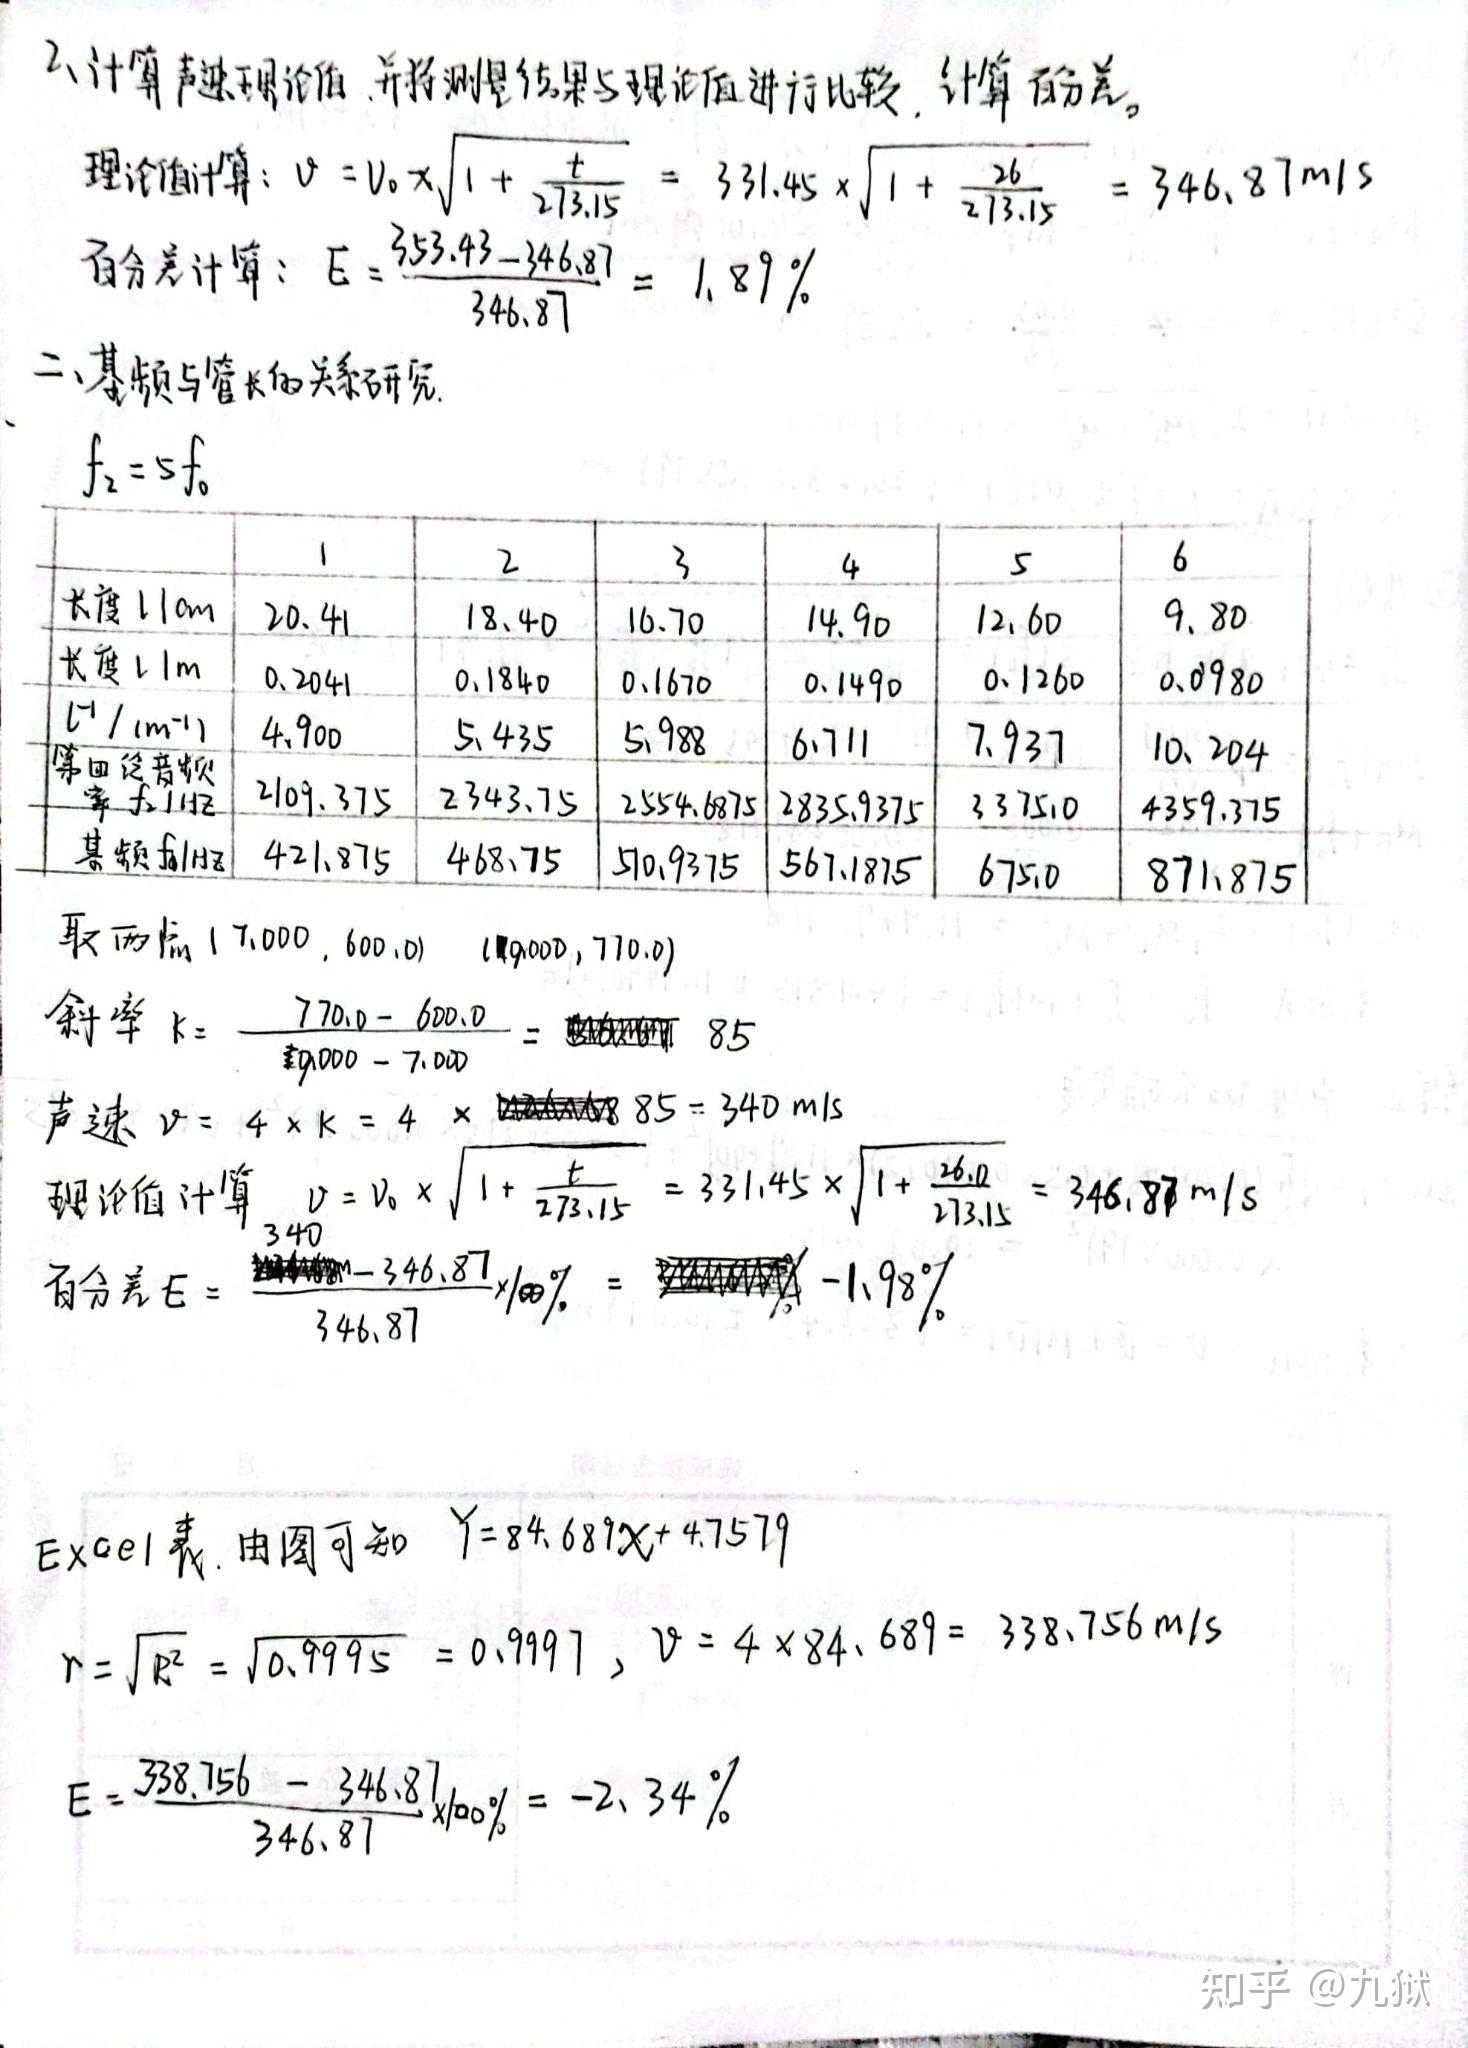 2、计算声速理论值,并将测量结果与理论值进行比较,计算百分差。
理论值计算: v = v₀ × √(1 + t/273.15) = 331.45 × √(1 + 26/273.15) = 346.87 m/s
百分差计算: E = (353.43 - 346.87)/346.87 = 1.89%
二、基频与管长的关系研究.
f₂ = 5f₀
1 2 3 4 5 6
长度 l/cm 20.41 18.40 16.70 14.90 12.60 9.80
长度 l/m 0.2041 0.1840 0.1670 0.1490 0.1260 0.0980
l⁻¹/(m⁻¹) 4.900 5.435 5.988 6.711 7.937 10.204
第四泛音频率 f₂/Hz 2109.375 2343.75 2554.6875 2835.9375 3375.0 4359.375
基频 f₀/Hz 421.875 468.75 510.9375 567.1875 675.0 871.875
取两点 (7.000, 600.0) (9.000, 770.0)
斜率 k = (770.0 - 600.0)/(9.000 - 7.000) = 85
声速 v = 4 × k = 4 × 85 = 340 m/s
理论值计算 v = v₀ × √(1 + t/273.15) = 331.45 × √(1 + 26.0/273.15) = 346.87 m/s
百分差 E = (340 - 346.87)/346.87 ×100% = -1.98%
Excel表. 由图可知 Y = 84.689x + 4.7579
r = √R² = √0.9995 = 0.9997, v = 4 × 84.689 = 338.756 m/s
E = (338.756 - 346.87)/346.87 ×100% = -2.34%
知乎 @九狱